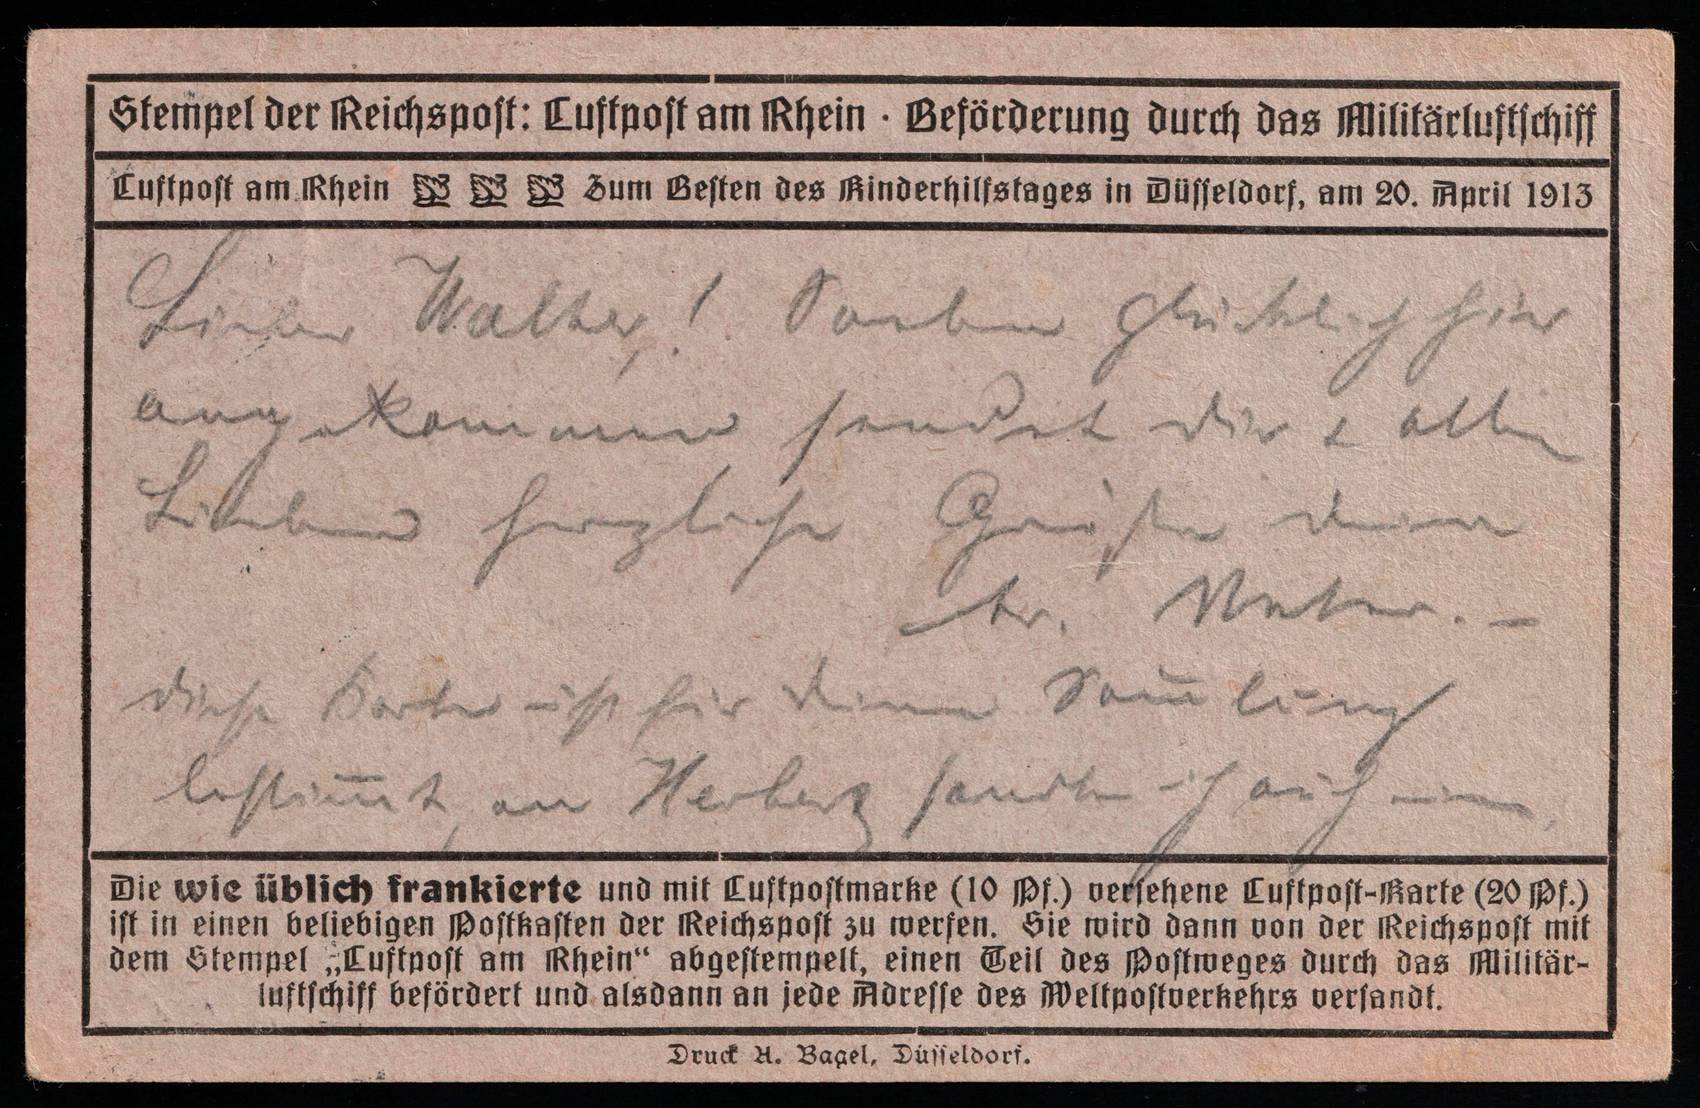 Stempel der Reichspost: Luftpost am Rhein · Beförderung durch das Militärluftschiff
Luftpost am Rhein Zum Besten des Kinderhilfstages in Düsseldorf, am 20. April 1913
Lieber Walter! Soeben glücklich hier
angekommen sendet dir & allen
Lieben herzliche Grüße dein
tr. Vater. –
diese Karte ist für deine Sam̅lung
bestim̅t, an Herbert sandte ich auch eine.
Die wie üblich frankierte und mit Luftpostmarke (10 Pf.) versehene Luftpost-Karte (20 Pf.)
ist in einen beliebigen Postkasten der Reichspost zu werfen. Sie wird dann von der Reichspost mit
dem Stempel „Luftpost am Rhein“ abgestempelt, einen Teil des Postweges durch das Militär-
luftschiff befördert und alsdann an jede Adresse des Weltpostverkehrs versandt.
Druck A. Bagel, Düsseldorf.